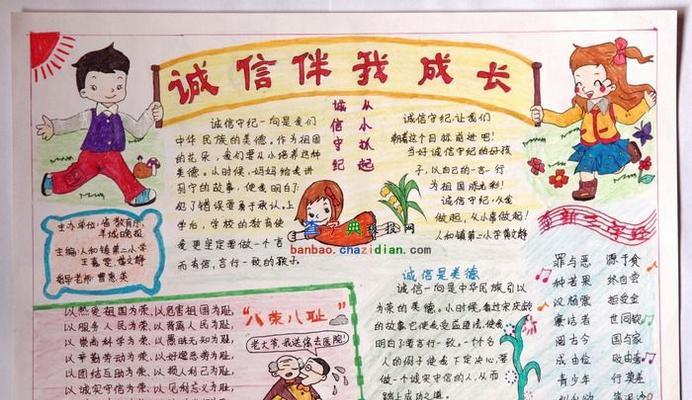 诚信伴我成长
从小抓起
诚信守纪
诚信守纪一向是我们
中华民族的美德。作为祖国
的花朵，我们要从小培养这种
美德。从小时候，妈妈给我讲
列宁的故事，使我明白了
犯了错误要勇于承认。上
学后，学校的教育使
我更坚定要做一个言
而有信，言行一致的孩子
诚信守纪，让我们
朝着这个目标前进吧！
当好诚信守纪的好孩
子，以自己的一言一行
为祖国添光彩！
诚信守纪，从我
做起，从小事做起！
人和镇第二小学
主办单位：省教育厅、
羊城晚报
主编：人和镇第二小学
指导老师：曹惠英
盒子典 板报网
banbao.chazidian.com
新三字经
罪与恶 源于贪
种苦果 终自尝
拒受金
世同钦
阅古今 国与家
成由俭 败由奢
青少年 行莫差
诚信是美德
诚信一向是中华民族引以
为荣的美德。小时候，看过宋庆龄
的故事它使我受益匪浅，使我
明白了要言行一致。一个名
人的例子使我下定决心，要
做一个诚实守信的人，从而
踏上成功之道。
“八荣八耻”
以热爱祖国为荣，以危害祖国为耻，
以服务人民为荣，以背离人民为耻，
以崇尚科学为荣，以愚昧无知为耻，
以辛勤劳动为荣，以好逸恶劳为耻，
以团结互助为荣，以损人利己为耻，
以诚实守信为荣，以见利忘义为耻，
老大爷，我送您去医院！